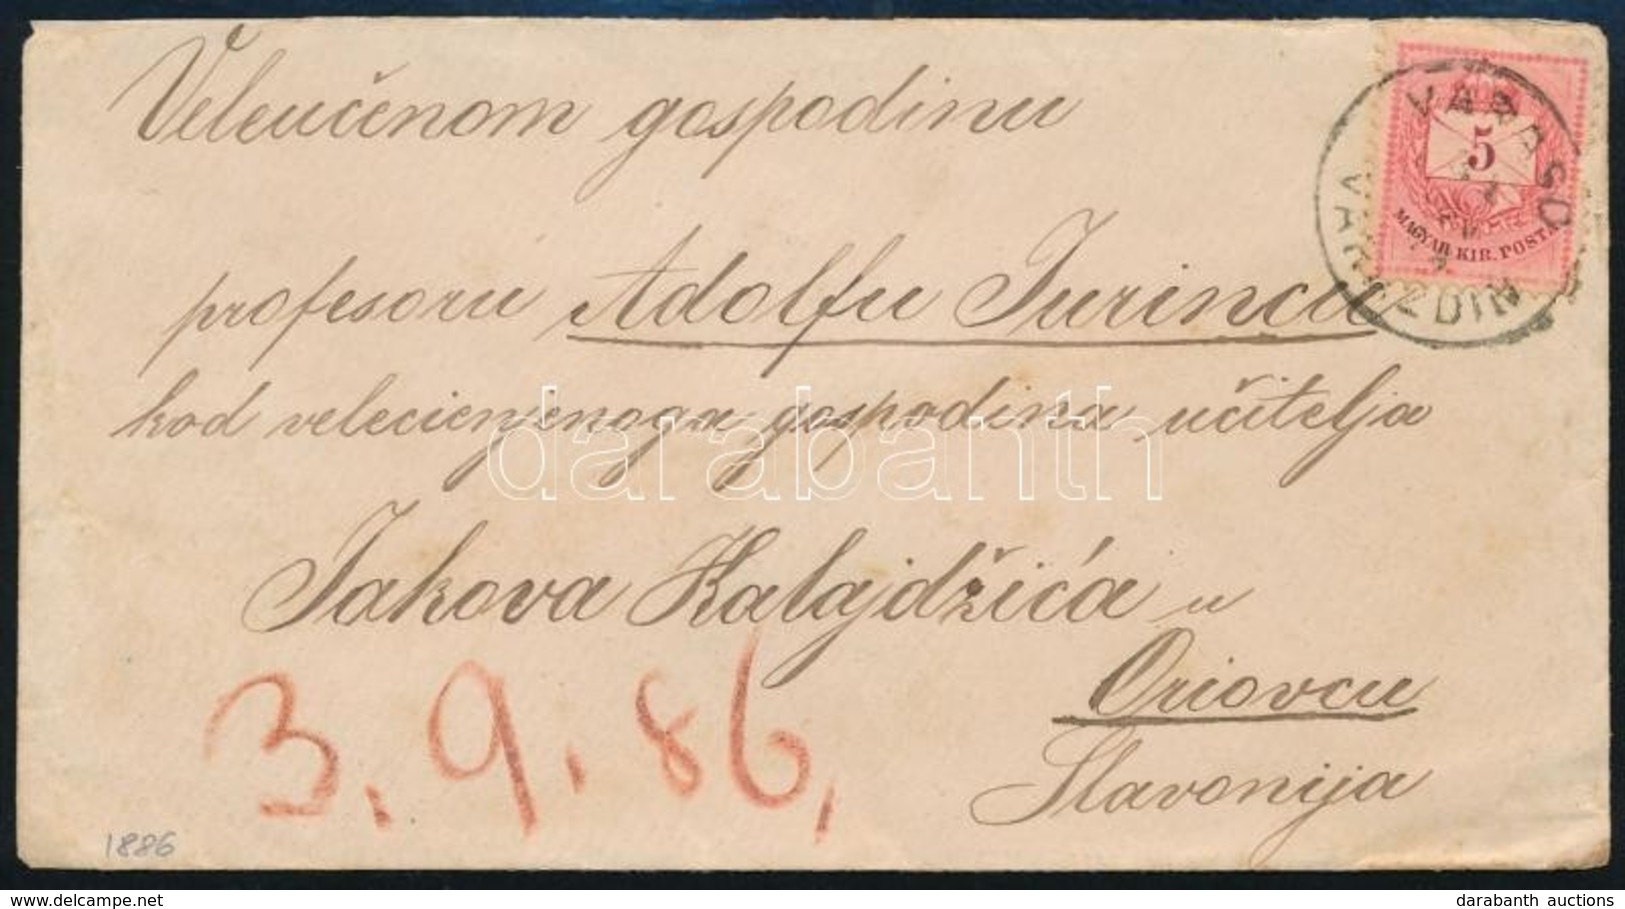 Veleučenom gospodinu
5
MAGYAR KIR. POSTA
profesoru Adolfu Jurincu
kod velecienjenoga gospodina učitelja
darabanth
Jakova Kalajdžića u
Oriovcu
3.9.86,
Slavonija
1886
www.darabanth.com
darabanth auctions